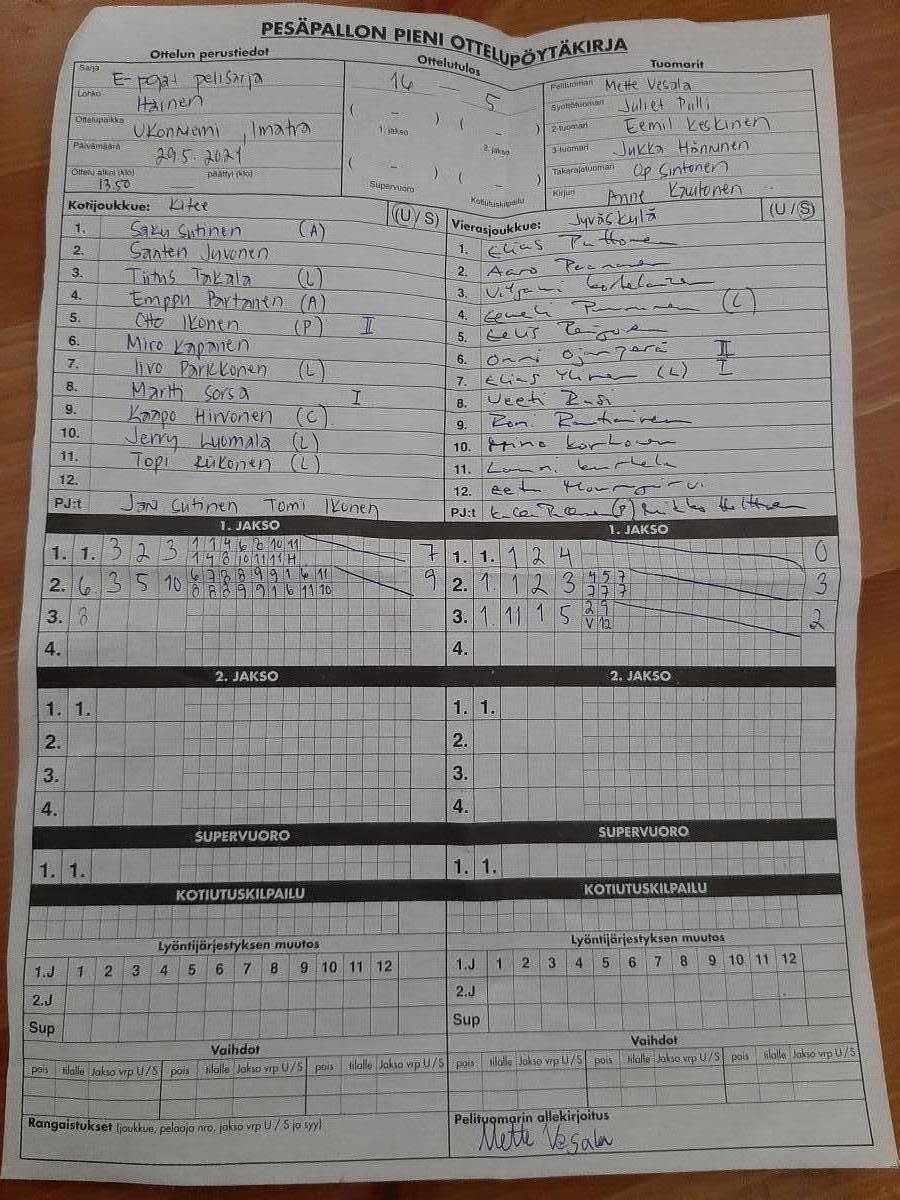 PESÄPALLON PIENI OTTELUPÖYTÄKIRJA
Ottelun perustiedot
Sarja E-pojat pelisarja
Lohko Itäinen
Ottelupaikka Ukonniemi, Imatra
Päivämäärä 29.5.2021
Ottelu alkoi (klo) 13.50 — päättyi (klo)
Ottelutulos
16 — 5
( – ) ( – )
1. jakso 2. jakso
( – ) ( – )
Supervuoro Kotiutuskilpailu
Tuomarit
Pelituomari Mette Vesala
Syöttötuomari Juliet Pulli
2-tuomari Eemil Keskinen
3-tuomari Jukka Hännunen
Takarajatuomari Op Sintonen
Kirjuri Anne Kautonen
Kotijoukkue: Kitee (U/S)
1. Saku Sutinen (A)
2. Santeri Juvonen
3. Tiitus Takala (L)
4. Emppu Partanen (A)
5. Otto Ikonen (P) II
6. Miro Kapanen
7. Iivo Parkkonen (L)
8. Martti Sorsa I
9. Kaapo Hirvonen (C)
10. Jerry Luomala (L)
11. Topi Riikonen (L)
12.
PJ:t Jari Sutinen Tomi Ikonen
Vierasjoukkue: Jyväskylä (U/S)
1. Elias Puttonen
2. Aaro
3.
4. (C)
5. Eelis
6. Onni Ojanperä II
7. Elias Ylinen (L) I
8. Veeti Rasi
9. Roni Rautiainen
10. Korhonen
11. Lauri
12. Eetu
PJ:t (P) Mikko
1. JAKSO
1. 1. 3 2 3 1 1 4 6 8 10 11 7
1 4 8 10 11 11 H
2. 6. 3 5 10 6 7 8 8 9 9 1 6 11 9
8 8 8 9 9 1 6 11 10
3. 8
4.
1. JAKSO
1. 1. 1 2 4 0
2. 1. 1 2 3 4 5 7 3
7 7 7
3. 1. 11 1 5 2 9 2
V 12
4.
2. JAKSO
1. 1.
2.
3.
4.
2. JAKSO
1. 1.
2.
3.
4.
SUPERVUORO
1. 1.
SUPERVUORO
1. 1.
KOTIUTUSKILPAILU
KOTIUTUSKILPAILU
Lyöntijärjestyksen muutos
1.J 1 2 3 4 5 6 7 8 9 10 11 12
2.J
Sup
Lyöntijärjestyksen muutos
1.J 1 2 3 4 5 6 7 8 9 10 11 12
2.J
Sup
Vaihdot
pois tilalle Jakso vrp U/S pois tilalle Jakso vrp U/S pois tilalle Jakso vrp U/S
Vaihdot
pois tilalle Jakso vrp U/S pois tilalle Jakso vrp U/S pois tilalle Jakso vrp U/S
Rangaistukset (joukkue, pelaaja nro, jakso vrp U / S ja syy)
Pelituomarin allekirjoitus
Mette Vesala